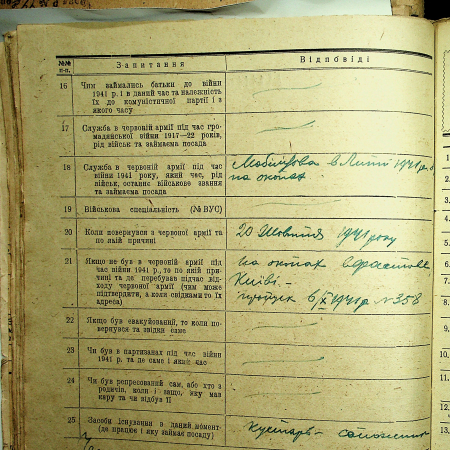 №№
п-п.
Запитання
Відповіді
16 Чим займались батьки до війни
1941 р. і в даний час та належність
їх до комуністичної партії і з
якого часу
17 Служба в червоній армії під час гро-
мадянської війни 1917—22 років,
рід військ та займаєма посада
18 Служба в червоній армії під час
війни 1941 року, який час, рід
військ, останнє військове звання
та займаєма посада
в 1941 р.
на окопах
19 Військова спеціальність (№ ВУС)
20 Коли повернувся з червоної армії та
по якій причині
20 жовтня 1941 року
21 Якщо не був в червоній армії під
час війни 1941 р., то по якій при-
чині та де перебував підчас від-
ходу червоної армії (чим може
підтвердити, а коли свідками то їх
адреса)
на окопах
Київі.
пропуск 6/X 1941 р. №358
22 Якщо був евакуйований, то коли по-
вернувся та звідки саме
23 Чи був в партизанах під час війни
1941 р. та де саме і який час
24 Чи був репресований сам, або хто з
родичів, коли і защо, яку мав
кару та чи відбув її
25 Засоби існування в даний момент
(де працює і яку займає посаду)
кустарь-
1.
2.
3.
4.
5.
6.
7.
8.
9.
10.
11.
12.
13.